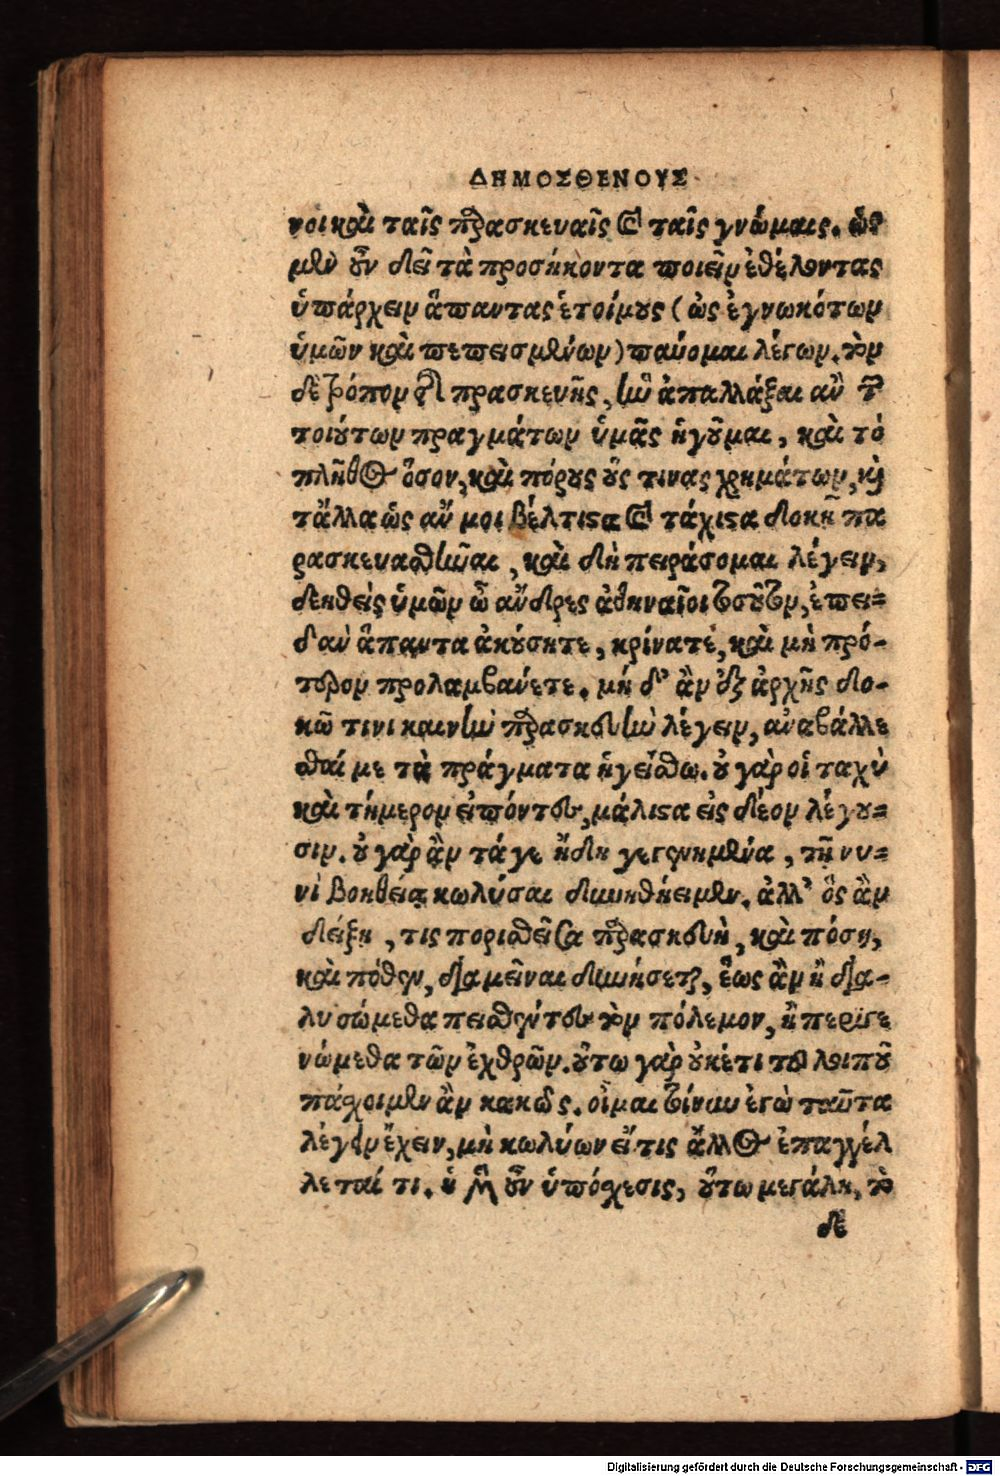 ΔΗΜΟΣΘΕΝΟΥΣ
νοι καὶ ταῖς παρασκευαῖς καὶ ταῖς γνώμαις. ὡς
μὲν οὖν δεῖ τὰ προσήκοντα ποιεῖν ἐθέλοντας
ὑπάρχειν ἅπαντας ἑτοίμους (ὡς ἐγνωκότων
ὑμῶν καὶ πεπεισμένων) παύομαι λέγων. τὸν
δὲ τρόπον τῆς πρασκευῆς, ἣν ἀπαλλάξαι ἂν τῶν
τοιούτων πραγμάτων ὑμᾶς ἡγοῦμαι, καὶ τὸ
πλῆθος ὅσον, καὶ πόρους οὕς τινας χρημάτων, καὶ
τἄλλα ὡς ἄν μοι βέλτιστα καὶ τάχιστα δοκῇ πα
ρασκευασθῆναι, καὶ δὴ πειράσομαι λέγειν,
δεηθεὶς ὑμῶν ὦ ἄνδρες ἀθηναῖοι τοσοῦτον, ἐπει=
δὰν ἅπαντα ἀκούσητε, κρίνατε, καὶ μὴ πρό-
τερον προλαμβάνετε. μή δ' ἂν ἐξ ἀρχῆς δο-
κῶ τινι καινὴν παρασκευὴν λέγειν, ἀναβάλλε
σθαί με τὰ πράγματα ἡγείσθω. οὐ γὰρ οἱ ταχὺ
καὶ τήμερον εἰπόντες, μάλιστα εἰς δέον λέγου=
σιν. οὐ γὰρ ἂν τά γε ἤδη γεγενημένα, τῇ νυ=
νὶ βοηθείᾳ κωλῦσαι δυνηθείημεν. ἀλλ' ὃς ἂν
δείξῃ, τις πορισθεῖσα παρασκευὴ, καὶ πόση,
καὶ πόθεν, διαμεῖναι δυνήσεται, ἕως ἂν ἢ δια-
λυσώμεθα πεισθέντες τὸν πόλεμον, ἢ περιγε
νώμεθα τῶν ἐχθρῶν. οὕτω γὰρ οὐκέτι τοῦ λοιποῦ
πάσχοιμεν ἂν κακῶς. οἶμαι τοίνυν ἐγὼ ταῦτα
λέγειν ἔχειν, μὴ κωλύων εἴ τις ἄλλος ἐπαγγέλ
λεταί τι. ἡ μὲν οὖν ὑπόσχεσις, οὕτω μεγάλη, τὸ
δὲ
Digitalisierung gefördert durch die Deutsche Forschungsgemeinschaft - DFG